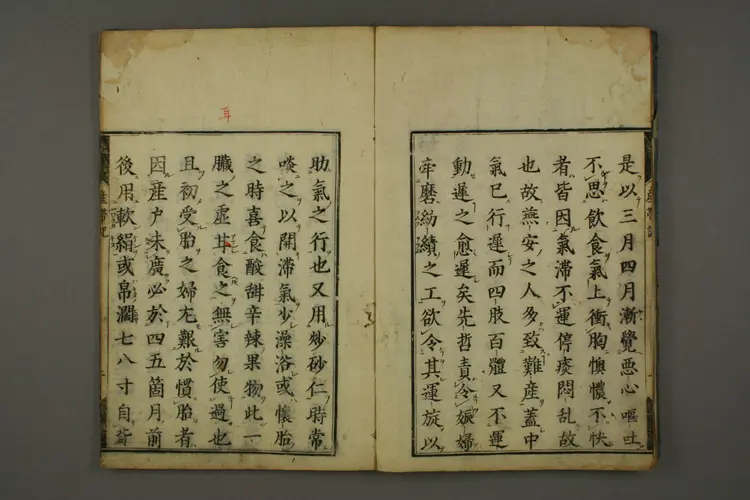 是以三月四月漸覺惡心嘔吐
不思飲食氣上衝胸懊憹不快
者皆因氣滯不運停痰悶亂故
也故燕安之人多致難産蓋中
氣已行遲而四肢百體又不運
動遲之愈遲矣先哲責令娠婦
牵磨紡績之工欲令其運旋以
助氣之行也又用炒砂仁時常
啖之以開滯氣少澡浴或懷胎
之時喜食酸甜辛辣果物此一
臟之虛甘食之無害勿使過也
且初受胎之婦尤艱於慣胎者
因産户未廣必於四五箇月前
後用軟絹或帛濶七八寸自
耳